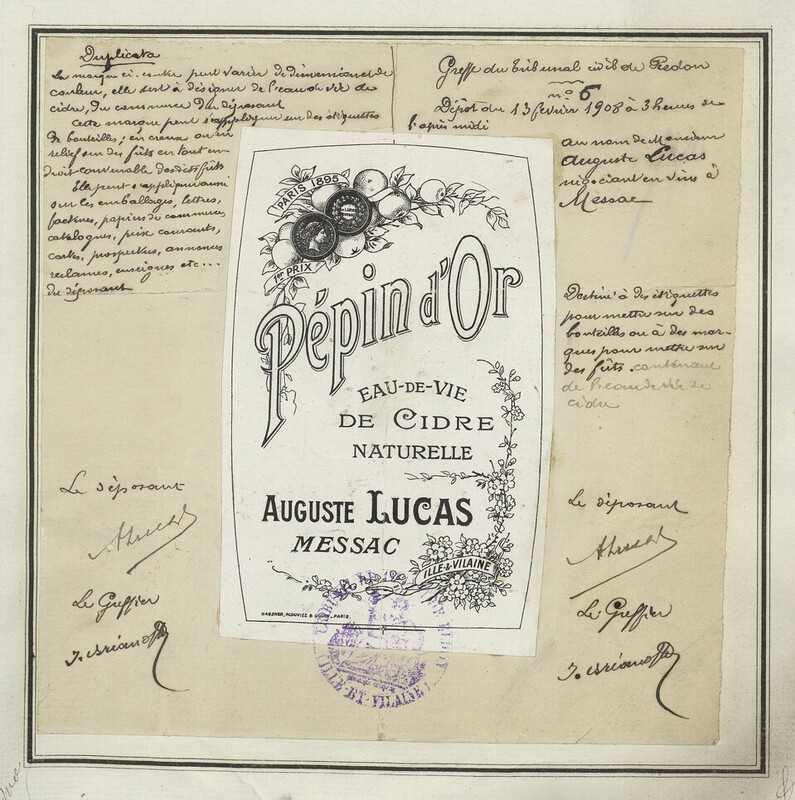 Duplicata
La marque ci-contre peut varier de dimension et de
couleur, elle sert à désigner de l'eau de vie de
cidre, du commerce du déposant
Cette marque peut s'appliquer sur des étiquettes
de bouteilles; en creux ou en
relief sur des fûts en tout en-
droit convenable desdits fûts
Elle peut s'appliquer aussi
sur les emballages, lettres,
factures, papiers de commerce
catalogues, prix courants,
cartes, prospectus, annonces
réclames, enseignes etc...
du déposant
Le déposant
ALucas
Le Greffier
Greffe du Tribunal civil de Redon
n° 6
Dépôt du 13 février 1908 à 3 heures de
l'après midi
au nom de Monsieur
Auguste Lucas
négociant en vins à
Messac
Destiné à des étiquettes
pour mettre sur des
bouteilles ou à des mar-
ques pour mettre sur
des fûts. contenant
de l'eau de vie de
cidre
Le déposant
ALucas
Le Greffier
PARIS 1895
1er PRIX
Pépin d'Or
EAU-DE-VIE
DE CIDRE
NATURELLE
AUGUSTE LUCAS
MESSAC
ILLE-&-VILAINE
PARIS
ILLE-ET-VILAINE